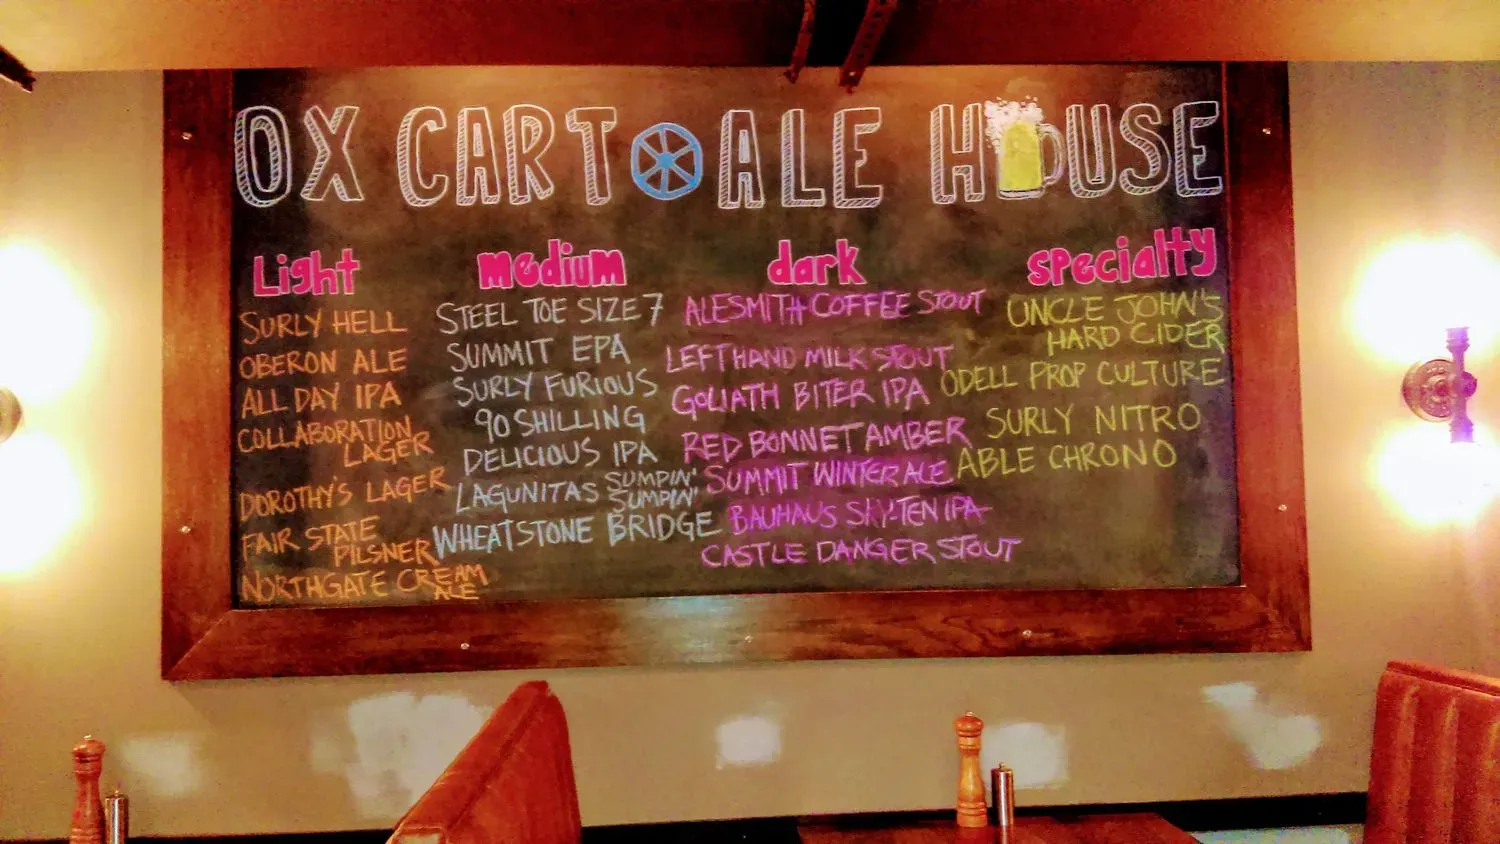 OX CART ALE HOUSE
Light
SURLY HELL
OBERON ALE
ALL DAY IPA
COLLABORATION
LAGER
DOROTHY'S LAGER
FAIR STATE
PILSNER
NORTHGATE CREAM
ALE
medium
STEEL TOE SIZE 7
SUMMIT EPA
SURLY FURIOUS
90 SHILLING
DELICIOUS IPA
LAGUNITAS SUMPIN'
SUMPIN'
WHEATSTONE BRIDGE
dark
ALESMITH COFFEE STOUT
LEFTHAND MILK STOUT
GOLIATH BITER IPA
RED BONNET AMBER
SUMMIT WINTER ALE
BAUHAUS SKY-TEN IPA
CASTLE DANGER STOUT
specialty
UNCLE JOHN'S
HARD CIDER
ODELL PROP CULTURE
SURLY NITRO
ABLE CHRONO